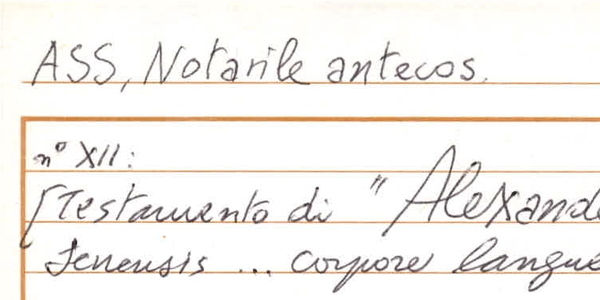 ASS, Notarile antecos.
n° XII:
[Testamento di "Alexand
Senensis ... corpore langue